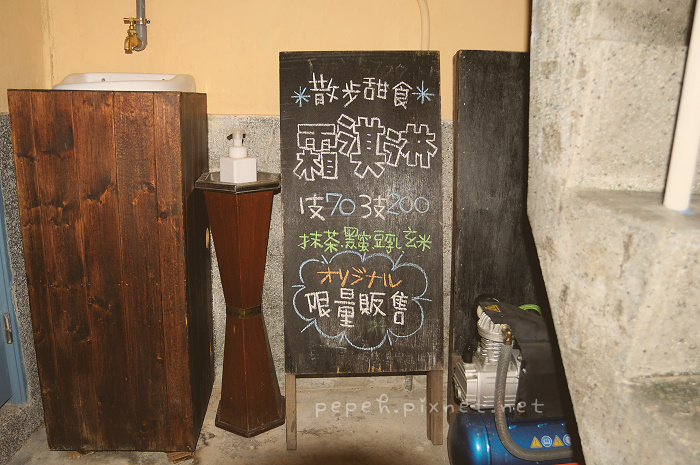 散步甜食
霜淇淋
1支70 3支200
抹茶 黑蜜 豆乳 玄米
オリジナル
限量販售
pepeh.pixnet.net